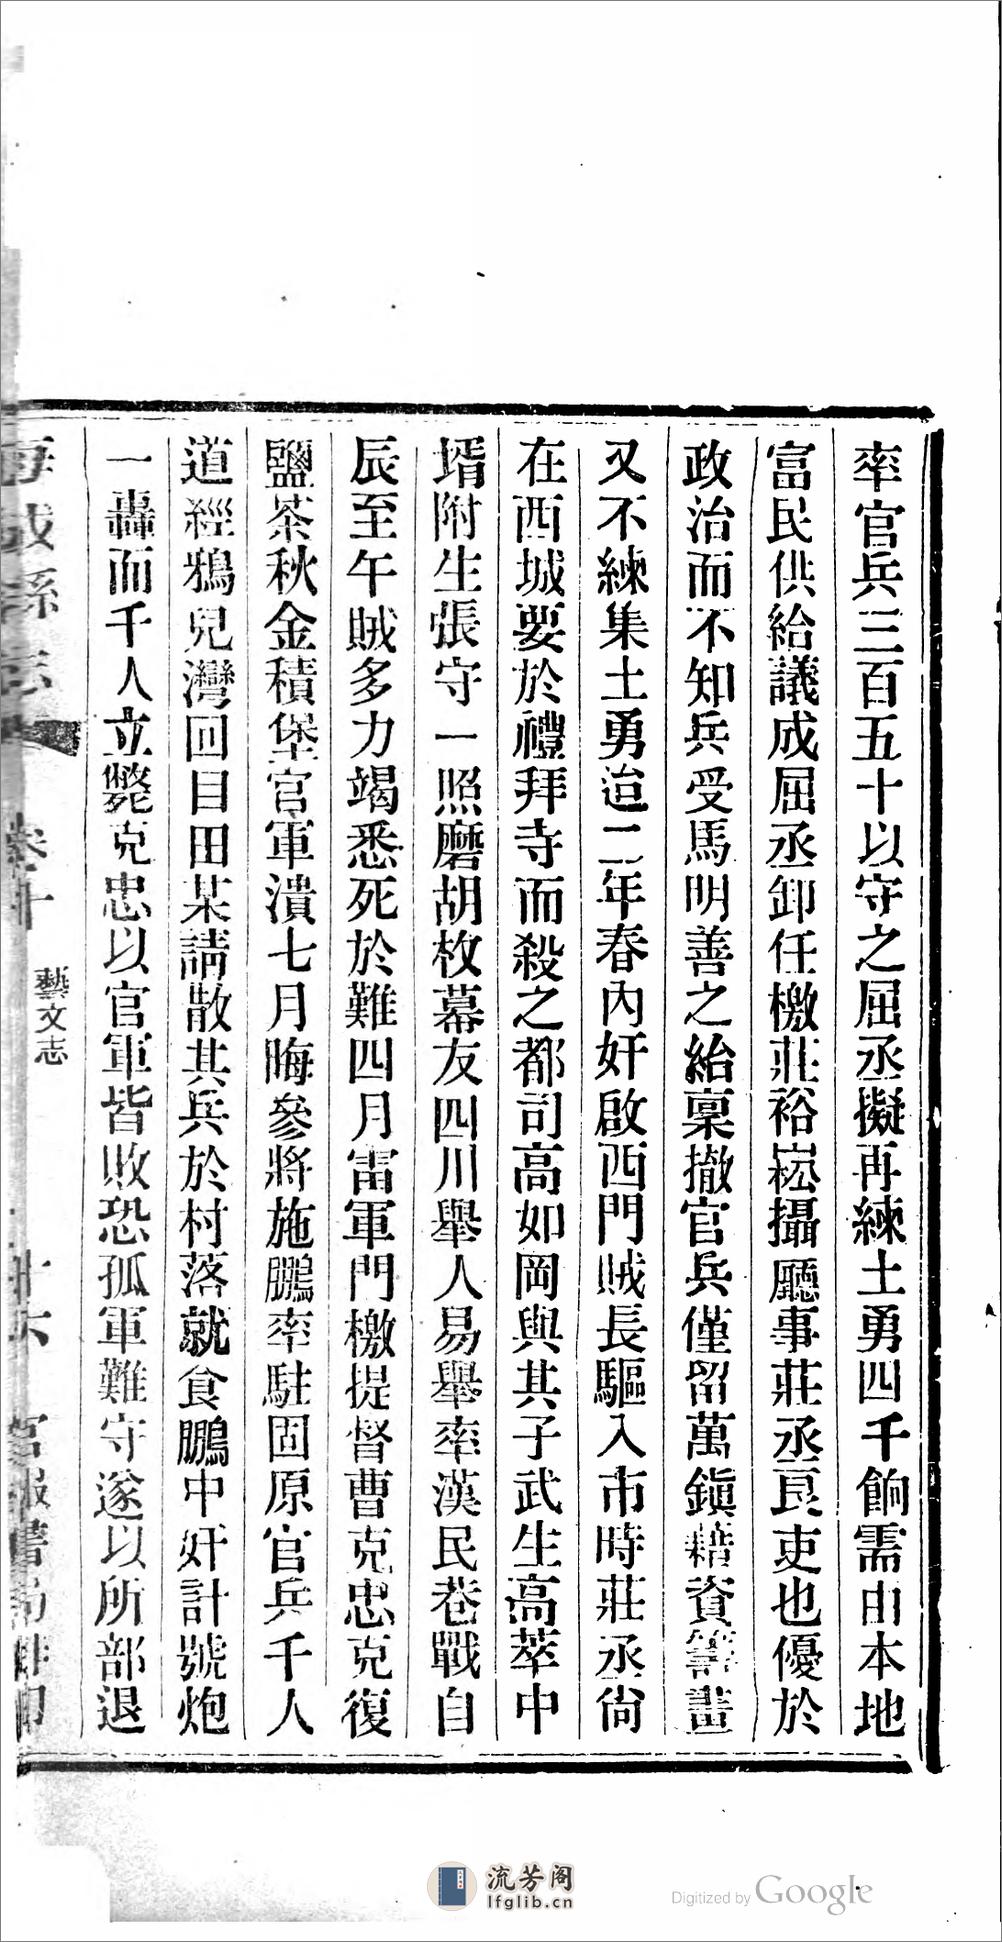 率官兵三百五十以守之屈丞擬再練土勇四千餉需由本地
富民供給議成屈丞卸任檄莊裕崧攝廳事莊丞良吏也優於
政治而不知兵受馬明善之紿稟撤官兵僅留萬鎮藉資籌畫
又不練集土勇迨二年春內奸啟西門賊長驅入市時莊丞尙
在西城要於禮拜寺而殺之都司高如岡與其子武生高萃中
壻附生張守一照磨胡枚幕友四川舉人易舉率漢民巷戰自
辰至午賊多力竭悉死於難四月雷軍門檄提督曹克忠克復
鹽茶秋金積堡官軍潰七月晦參將施鵬率駐固原官兵千人
道經鴉兒灣回目田某請散其兵於村落就食鵬中奸計號炮
一轟而千人立斃克忠以官軍皆敗恐孤軍難守遂以所部退
海城縣志
卷十
藝文志
十六
官報書局排印
流芳阁
lfglib.cn
Digitized by Google